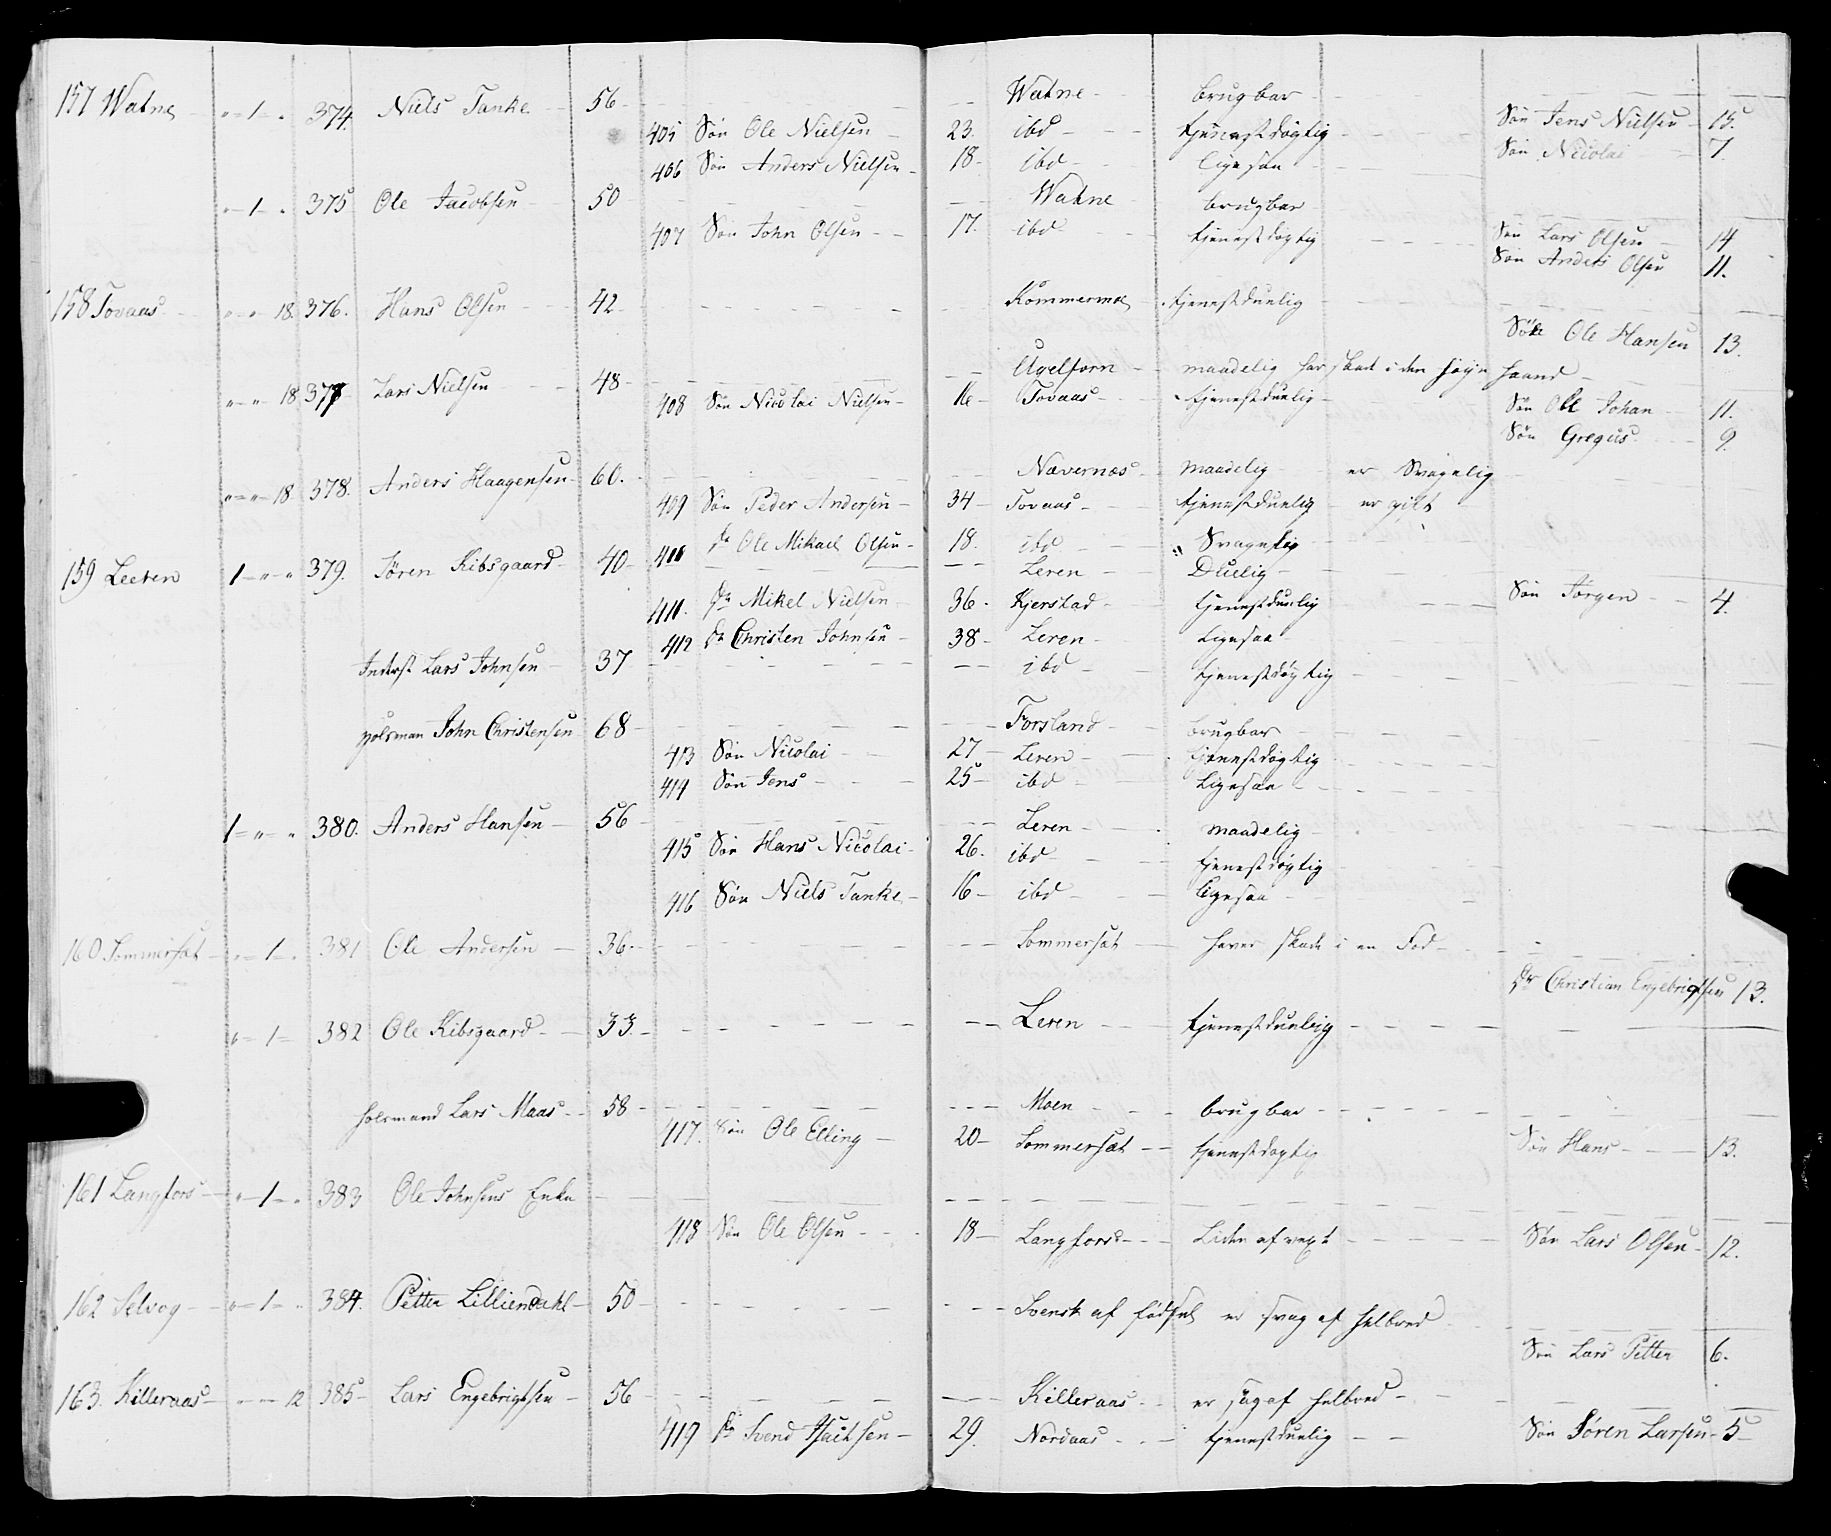 157 Watne " 1 " 374. Niels Tanke 56 Watne brugbar
405 Søn Ole Nielsen 23. ibd tjenestdøgtig Søn Jens Nielsen 15.
406 Søn Anders Nielsen 18. ibd ligesaa Søn Nicolai 7.
" 1 " 375 Ole Jacobsen 50 Watne brugbar
407 Søn John Olsen 17. ibd tjenestdøgtig Søn Lars Olsen 14
Søn Anders Olsen 11.
158 Tovaas " " 18. 376. Hans Olsen 42 tjenestduelig
Søn Ole Hansen 13.
" " 18 377 Lars Nielsen 48 maadelig har skade i den høyre Haand
408 Søn Nicolai Nielsen 16 Tovaas tjenestduelig Søn Ole Johan 11.
Søn Gregus 9.
" " 18 378. Anders Haagensen 60. Nævernæs maadelig er Svagelig
409 Søn Peder Andersen 34 Tovaas tjenestduelig er gift
410 dr Ole Mikael Olsen 18. ibd Svagelig
159 Leeren 1 " " 379. Søren Kibsgaard 40 Leren Duelig
411. dr Mikel Nielsen 36. Kjerstad tjenestduelig Søn Jørgen 4.
412 dr Christen Johnsen 38 Leren Ligesaa
Inderst Lars Johnsen 37 ibd tjenestdøgtig
John Christensen 68 Forsland brugbar
413 Søn Nicolai 27 Leren tjenestdøgtig
414 Søn Jens 25 ibd Ligesaa
1 " " 380. Anders Hansen 56 Leren maadelig
415 Søn Hans Nicolai 26. ibd tjenestdøgtig
416 Søn Niels Tanke 16 ibd ligesaa
160 Sommersæt " 1 " 381 Ole Andersen 36. Sommersæt haver skade i en Fod
dr Christian Engebrigtsen 13.
" 1 382 Ole Kibsgaard 33. Leren tjenestduelig
Lars Maas 58 Moen brugbar
417. Søn Ole Elling 20 Sommersæt tjenestdøgtig Søn Hans 13.
161 Langfors " 1 " 383 Ole Johnsens Enke
418 Søn Ole Olsen 18 Langfors Liden af vext Søn Lars Olsen 12.
162 Selvog " 1 " 384. Petter Lilliendahl 50 Svensk af fødsel er svag af Helbred
Søn Lars Petter 6.
163. Killeraas " " 12 385 Lars Engebrigtsen 56 Killeraas er svag af Helbred
419 dr Svend Isachsen 29. Nordaas tjenestduelig Søn Søren Larsen 5